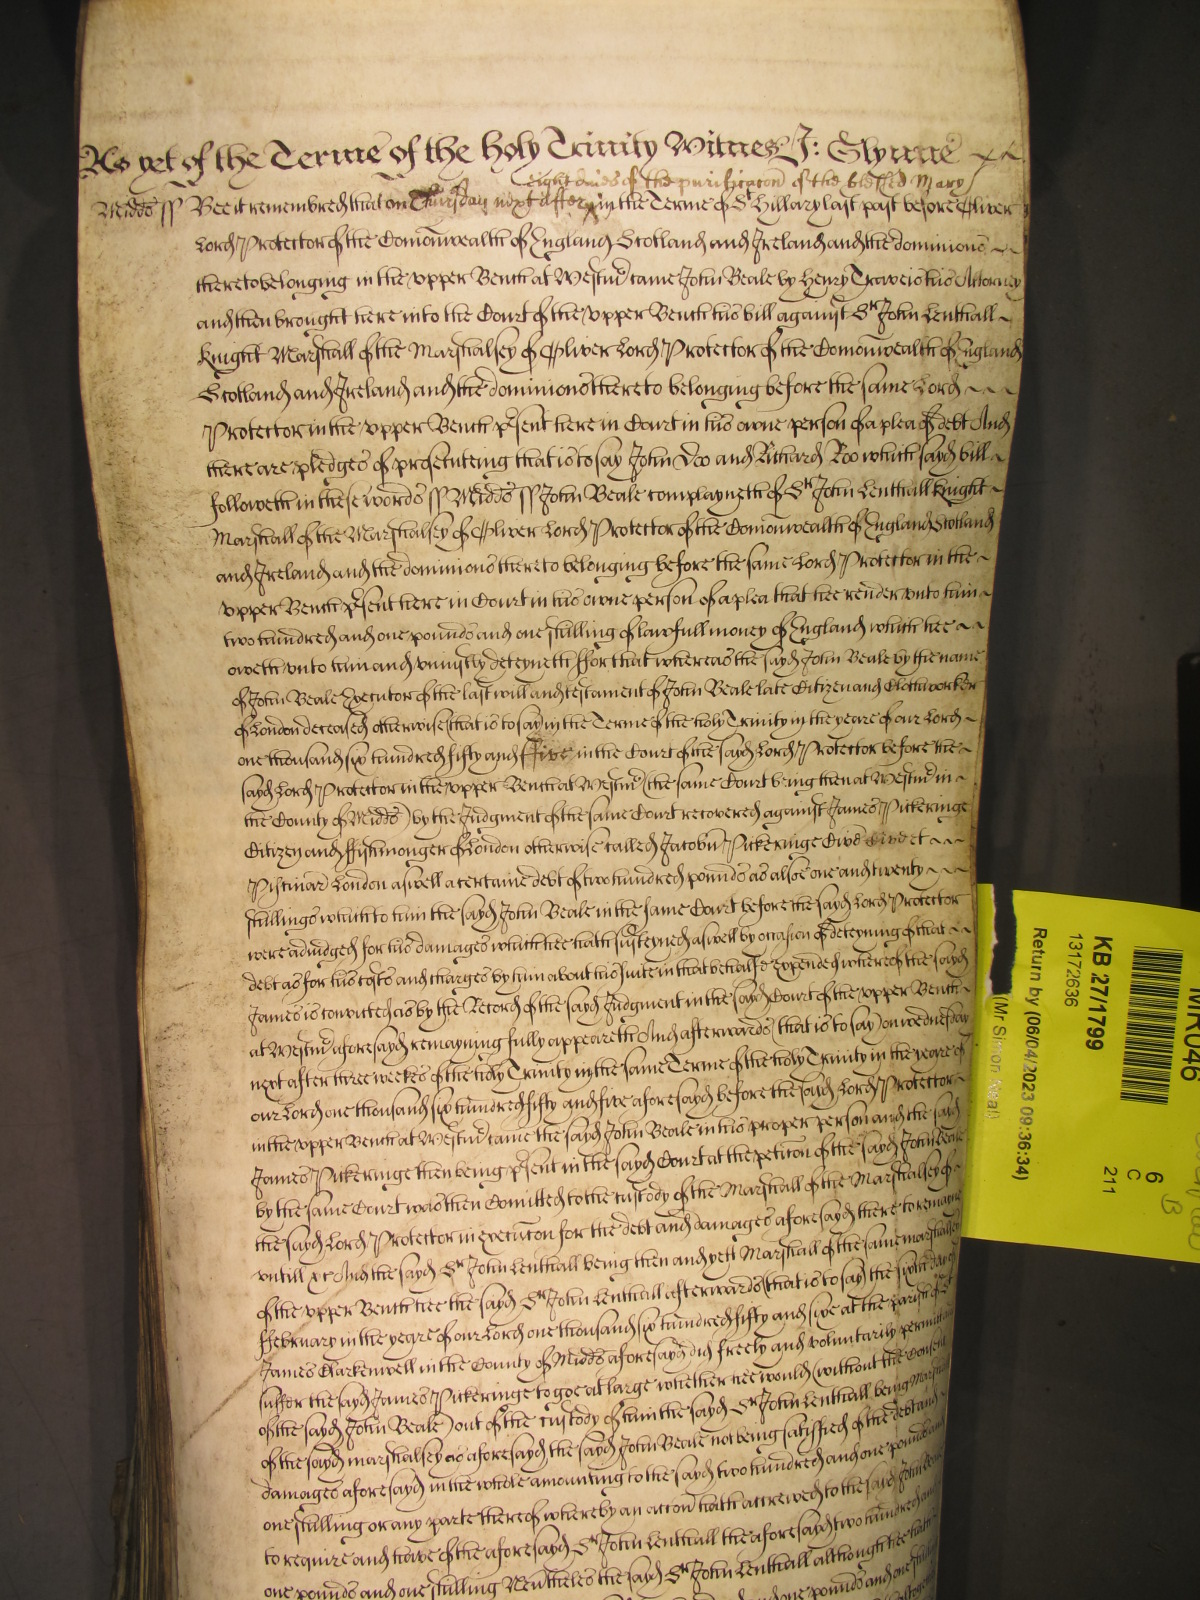 As yet of the Terme of the holy Trinity Witnes J: Glynne
eight daies of the purificacon of the blessed Mary
Midds ss Bee it remembred that on Thursday next after in the Terme of St Hillary last past before Oliver
Lord Protector of the Comonwealth of England Scotland and Ireland and the dominions
thereto belonging in the upper Bench at Westmr came John Beale by Henry Traveis his Attorney
and then brought here into the Court of the upper Bench his bill against Sr John Lenthall
Knight Marshall of the Marshalsey of Oliver Lord Protector of the Comonwealth of England
Scotland and Ireland and the dominions thereto belonging before the same Lord
Protector in the upper Bench psent here in Court in his owne person of a plea of debt And
there are pledges of prosecuteing that is to say John Doo and Richard Roo which sayd bill
followeth in these words ss Midds ss John Beale complayneth of Sr John Lenthall Knight
Marshall of the Marshalsey of Oliver Lord Protector of the Comonwealth of England Scotland
and Ireland and the dominions thereto belonging before the same Lord Protector in the
upper Bench psent here in Court in his owne person of a plea that hee render unto him
two hundred and one pounds and one shilling of lawfull money of England which hee
oweth unto him and uniustly deteyneth ffor that whereas the sayd John Beale by the name
of John Beale Executor of the last will and testament of John Beale late Citizen and Clothworker
of London deceased otherwise (that is to say) in the Terme of the holy Trinity in the yeare of our Lord
one thousand six hundred fifty and five in the Court of the sayd Lord Protector before the
sayd Lord Protector in the upper Bench at Westmr (the same Court being then at Westmr in
the County of Midds) by the Judgment of the same Court recovered against James Pickeringe
Citizen and ffishmonger of London otherwise called Jacobu Pickeringe Civd et
Pischinar London aswell a certaine debt of two hundred pounds as alsoe one and twenty
shillings which to him the sayd John Beale in the same Court before the sayd Lord Protector
were adiudged for his damages which hee hath susteyned aswell by occasion of deteyning of that
debt as for his costs and charges by him about his suite in that behalfe expended whereof the sayd
James is convicted as by the Record of the sayd Judgment in the sayd Court of the upper Bench
at Westmr aforesayd remayning fully appeareth And afterwards (that is to say) on wednesday
next after three weekes of the holy Trinity in the same Terme of the holy Trinity in the yeare of
our Lord one thousand six hundred fifty and five aforesayd before the sayd Lord Protector
in the upper Bench at Westmr came the sayd John Beale in his proper person and the sayd
James Pickeringe then being psent in the sayd Court at the peticon of the sayd John Beale
by the same Court was then Comitted to the custody of the Marshall of the Marshalsey of
the sayd Lord Protector in execucon for the debt and damages aforesayd there to remayne
untill &c And the sayd Sr John Lenthall being then and yett Marshall of the same marshalsey
of the upper Bench hee the sayd Sr John Lenthall afterwards (that is to say) the sixth day of
ffebruary in the yeare of our Lord one thousand six hundred fifty and sixe at the parish of St
James Clarkenwell in the County of Midds aforesayd did freely and voluntarily permitt
suffer the sayd James Pickeringe to goe at large whether hee would (without the Consent
of the sayd John Beale) out of the custody of him the sayd Sr John Lenthall being Marshall
of the sayd marshalsey as aforesayd the sayd John Beale not being satisfied of the debt and
damages aforesayd in the whole amounting to the sayd two hundred and one pounds and
one shilling or any parte thereof whereby an accon hath accrewed to the sayd John Beale
to require and have of the aforesayd Sr John Lenthall the aforesayd two hundred and
one pounds and one shilling Nevertheles the sayd Sr John Lenthall although hee hath
and one pounds and one shilling
MR046
6
C
211
KB 27/1799
13172636
Return by (06/04/2023 09:36:34)
(Mr Simon Neal)